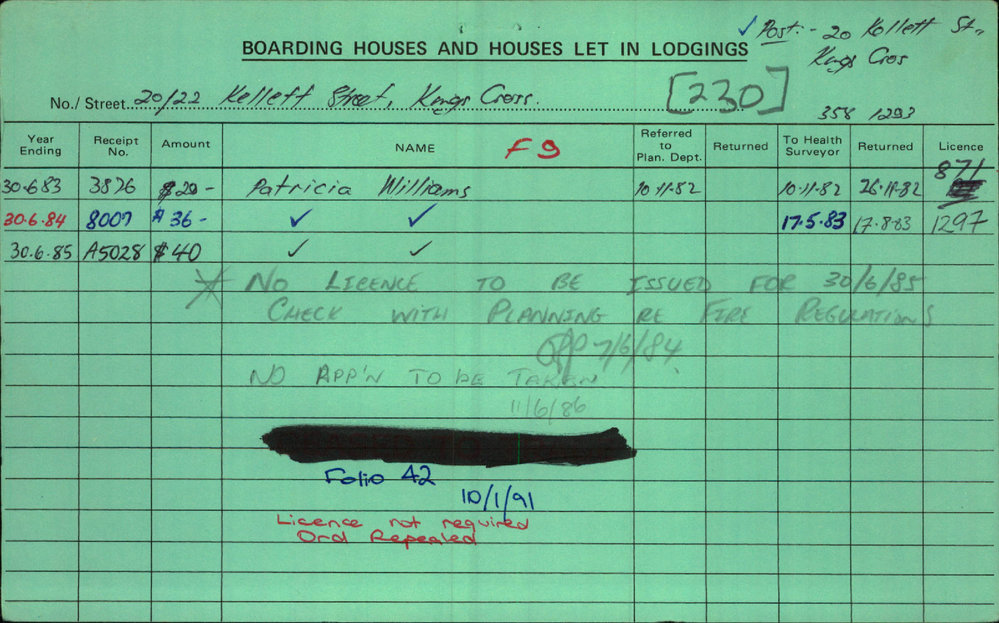 ✓ Post:- 20 Kellett St.,
Kings Cros
BOARDING HOUSES AND HOUSES LET IN LODGINGS
No./Street 20/22 Kellett Street, Kings Cross. [230]
358 1293
Year Ending Receipt No. Amount NAME F9 Referred to Plan. Dept. Returned To Health Surveyor Returned Licence
30.6.83 3826 $20- Patricia Williams 10.11.82 10.11.82 26.11.82 871
30.6.84 8007 $36- ✓ ✓ 17.5.83 17.8.83 1297
30.6.85 A5028 $40 ✓ ✓
* NO LICENCE TO BE ISSUED FOR 30/6/85
CHECK WITH PLANNING RE FIRE REGULATIONS
7/6/84.
NO APP'N TO BE TAKEN
11/6/86
Folio 42
10/1/91
Licence not required
Ord Repealed